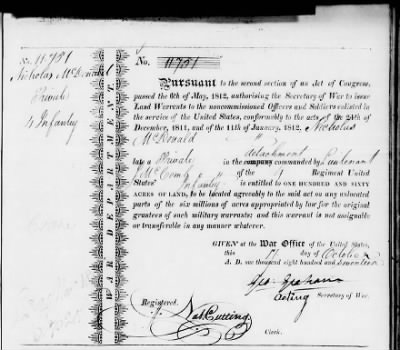 No. 11751
Nicholas McDonald
Private
4 Infantry
WAR DEPARTMENT.
No. 11751
Pursuant to the second section of an Act of Congress,
passed the 6th of May, 1812, authorising the Secretary of War to issue
Land Warrants to the noncommissioned Officers and Soldiers enlisted in
the service of the United States, conformably to the acts of the 24th of
December, 1811, and of the 11th of January, 1812, Nicholas
McDonald
late a Private in the company commanded by Lieutenant
detachment
McComb of the Regiment United
States' Infantry is entitled to ONE HUNDRED AND SIXTY
ACRES OF LAND, to be located agreeably to the said act on any unlocated
parts of the six millions of acres appropriated by law for the original
grantees of such military warrants; and this warrant is not assignable
or transferable in any manner whatever.
GIVEN at the War Office of the United States,
this day of October
A. D. one thousand eight hundred and seventeen
Geo: Graham
Acting Secretary of War.
Registered.
Nat. Cutting
Clerk.